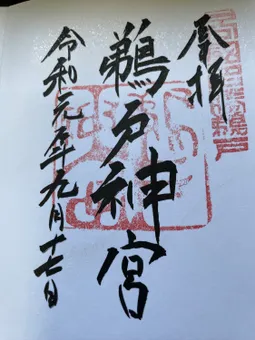 奉拝
鵜戸神宮
令和元年九月十七日